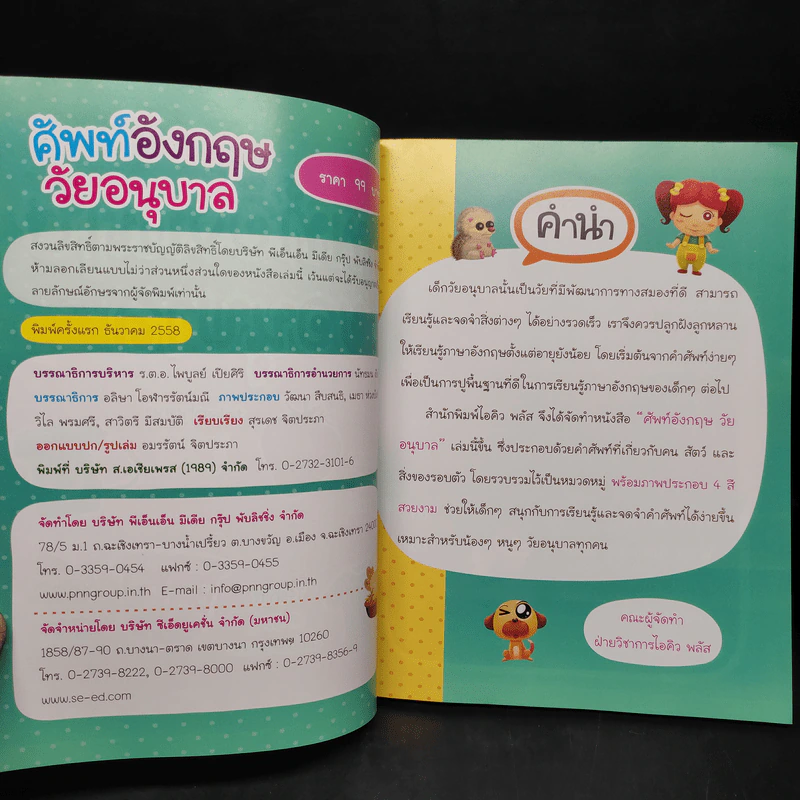 ศัพท์อังกฤษ
วัยอนุบาล
ราคา 99
สงวนลิขสิทธิ์ตามพระราชบัญญัติลิขสิทธิ์โดยบริษัท พีเอ็นเอ็น มีเดีย กรุ๊ป พับลิชชิ่ง
ห้ามลอกเลียนแบบไม่ว่าส่วนหนึ่งส่วนใดของหนังสือเล่มนี้ เว้นแต่จะได้รับอนุญาต
ลายลักษณ์อักษรจากผู้จัดพิมพ์เท่านั้น
พิมพ์ครั้งแรก ธันวาคม 2558
บรรณาธิการบริหาร ร.ต.อ.ไพบูลย์ เปียศิริ บรรณาธิการอำนวยการ
บรรณาธิการ อลิษา โอฬารรัตน์มณี ภาพประกอบ วัฒนา สืบสนธิ, เมธา
วิไล พรมศรี, สาวิตรี มีสมบัติ เรียบเรียง สุรเดช จิตประภา
ออกแบบปก/รูปเล่ม อมรรัตน์ จิตประภา
พิมพ์ที่ บริษัท ส.เอเชียเพรส (1989) จำกัด โทร. 0-2732-3101-6
จัดทำโดย บริษัท พีเอ็นเอ็น มีเดีย กรุ๊ป พับลิชชิ่ง จำกัด
78/5 ม.1 ถ.ฉะเชิงเทรา-บางน้ำเปรี้ยว ต.บางขวัญ อ.เมือง จ.ฉะเชิงเทรา 24000
โทร. 0-3359-0454 แฟกซ์ : 0-3359-0455
www.pnngroup.in.th E-mail : info@pnngroup.in.th
จัดจำหน่ายโดย บริษัท ซีเอ็ดยูเคชั่น จำกัด (มหาชน)
1858/87-90 ถ.บางนา-ตราด เขตบางนา กรุงเทพฯ 10260
โทร. 0-2739-8222, 0-2739-8000 แฟกซ์ : 0-2739-8356-9
www.se-ed.com
คำนำ
เด็กวัยอนุบาลนั้นเป็นวัยที่มีพัฒนาการทางสมองที่ดี สามารถ
เรียนรู้และจดจำสิ่งต่างๆ ได้อย่างรวดเร็ว เราจึงควรปลูกฝังลูกหลาน
ให้เรียนรู้ภาษาอังกฤษตั้งแต่อายุยังน้อย โดยเริ่มต้นจากคำศัพท์ง่ายๆ
เพื่อเป็นการปูพื้นฐานที่ดีในการเรียนรู้ภาษาอังกฤษของเด็กๆ ต่อไป
สำนักพิมพ์ไอคิว พลัส จึงได้จัดทำหนังสือ "ศัพท์อังกฤษ วัย
อนุบาล" เล่มนี้ขึ้น ซึ่งประกอบด้วยคำศัพท์ที่เกี่ยวกับคน สัตว์ และ
สิ่งของรอบตัว โดยรวบรวมไว้เป็นหมวดหมู่ พร้อมภาพประกอบ 4 สี
สวยงาม ช่วยให้เด็กๆ สนุกกับการเรียนรู้และจดจำคำศัพท์ได้ง่ายขึ้น
เหมาะสำหรับน้องๆ หนูๆ วัยอนุบาลทุกคน
คณะผู้จัดทำ
ฝ่ายวิชาการไอคิว พลัส